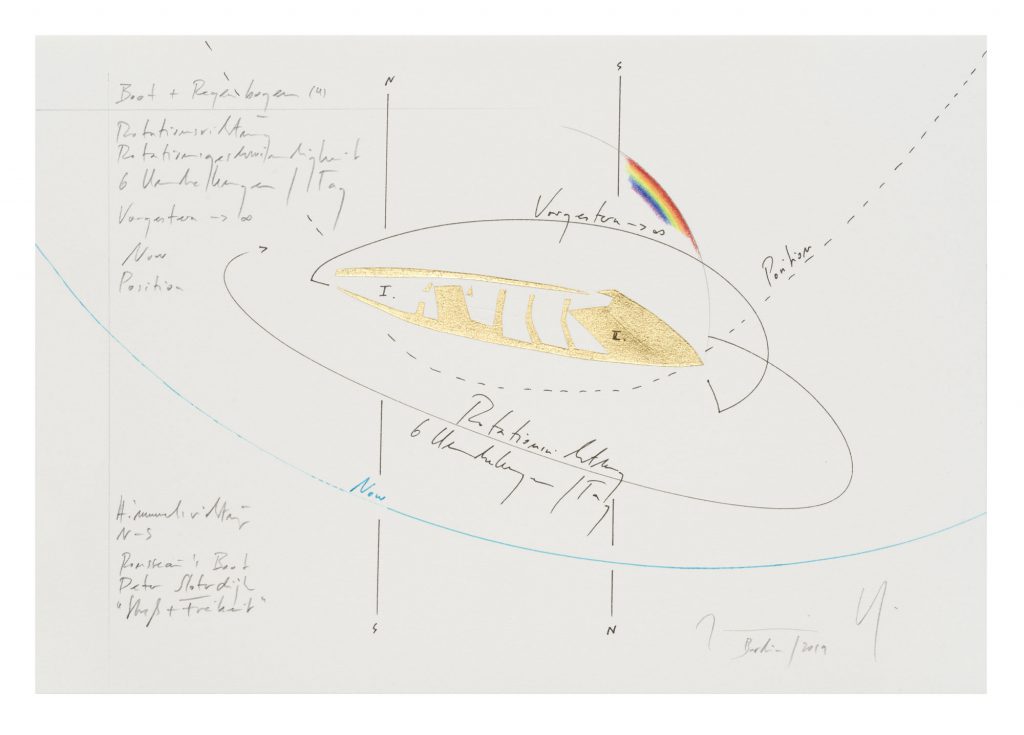 Boot + Regenbogen (4)
Rotationsrichtung
Rotationsgeschwindigkeit
6 Umdrehungen / Tag
Vorgestern -> ∞
Now
Position
N
S
Vorgestern -> ∞
Position
I.
II.
Rotationsrichtung
6 Umdrehungen / Tag
Now
Himmelsrichtung
N-S
Rousseau's Boot
Peter Sloterdijk
"Streß + Freiheit"
S
N
Berlin / 2019